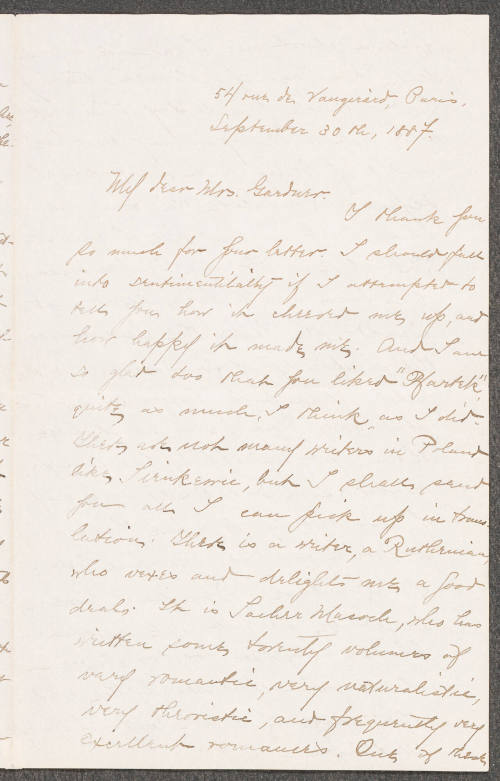 54 rue de Vaugirard, Paris.
September 30th, 1887.
My dear Mrs. Gardner.
I thank you
so much for your letter. I should fall
into sentimentality if I attempted to
tell you how it cheered me up, and
how happy it made me. And I am
so glad too that you liked "Bartek"
quite as much, I think, as I did.
There are not many writers in Poland
like Sienkewic, but I shall send
you all I can pick up in trans
lation. There is a writer, a Ruthenian,
who vexes and delights me a good
deal. It is Sacher Masoch, who has
written some twenty volumes of
very romantic, very naturalistic,
very theoristic, and frequently very
excellent romances. One of these